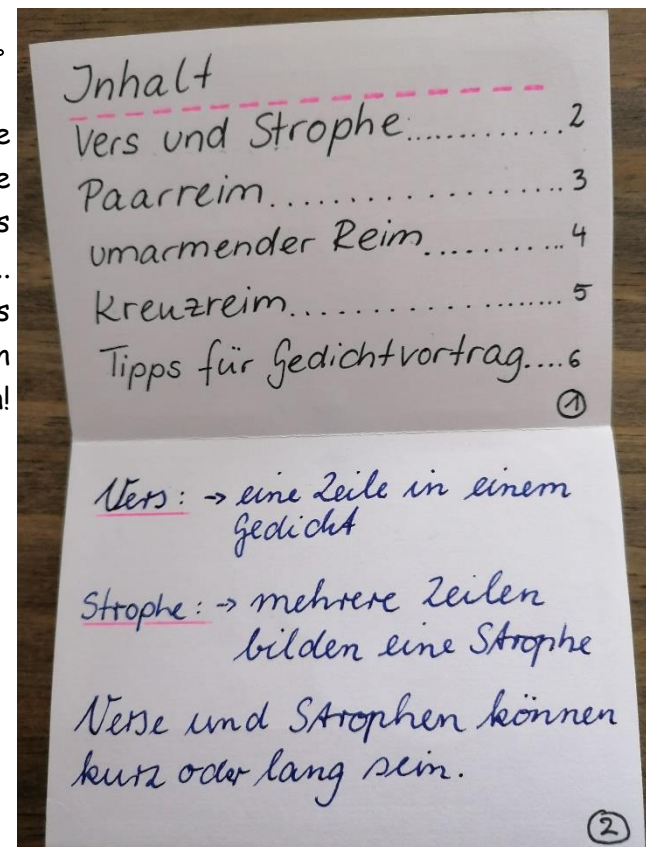 Inhalt
Vers und Strophe............2
Paarreim....................3
umarmender Reim...........4
Kreuzreim...................5
Tipps für Gedichtvortrag....6
1
Vers: → eine Zeile in einem
Gedicht
Strophe: → mehrere Zeilen
bilden eine Strophe
Verse und Strophen können
kurz oder lang sein.
2